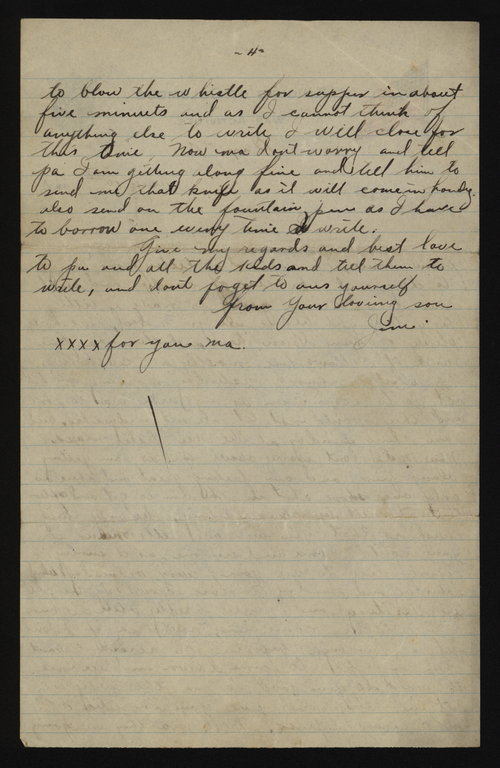 -4-
to blow the whistle for supper in about
five minuets and as I cannot think of
anything else to write I will close for
this time. Now ma dont worry and tell
pa I am getting along fine and tell him to
send me that knife as it will come in handy.
also send on the fountain pen as I have
to borrow one every time I write.
Give my regards and best love
to pa and all the kids and tell them to
write, and dont forget to ans yourself
From Your loving son
xxxx for you ma.